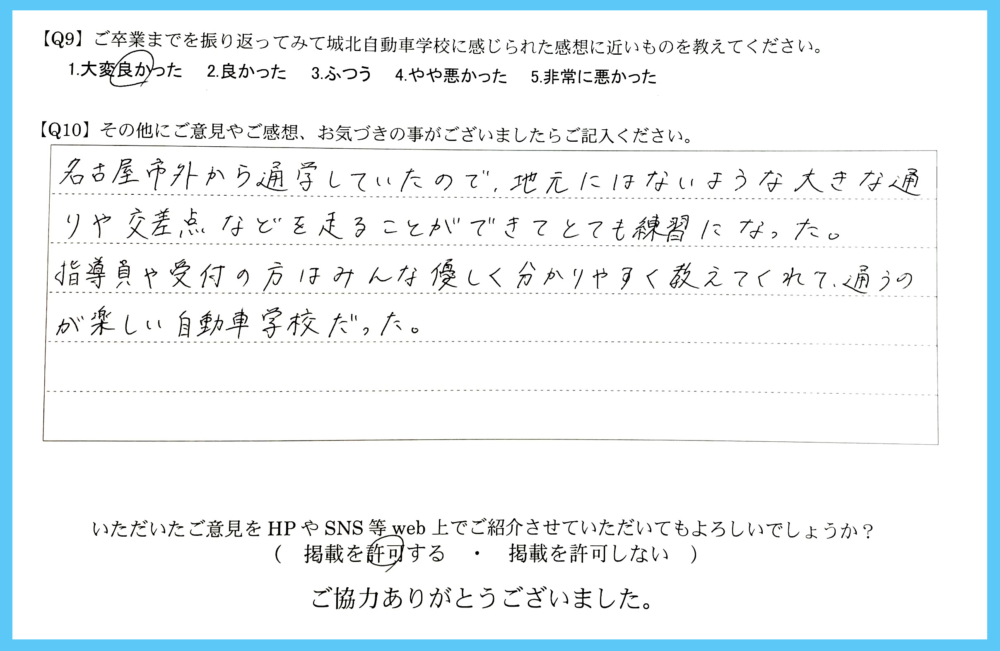 【Q9】ご卒業までを振り返ってみて城北自動車学校に感じられた感想に近いものを教えてください。
1.大変良かった 2.良かった 3.ふつう 4.やや悪かった 5.非常に悪かった
【Q10】その他にご意見やご感想、お気づきの事がございましたらご記入ください。
名古屋市外から通学していたので、地元にはないような大きな通
りや交差点などを走ることができてとても練習になった。
指導員や受付の方はみんな優しく分かりやすく教えてくれて、通うの
が楽しい自動車学校だった。
いただいたご意見をHPやSNS等web上でご紹介させていただいてもよろしいでしょうか？
（ 掲載を許可する ・ 掲載を許可しない ）
ご協力ありがとうございました。